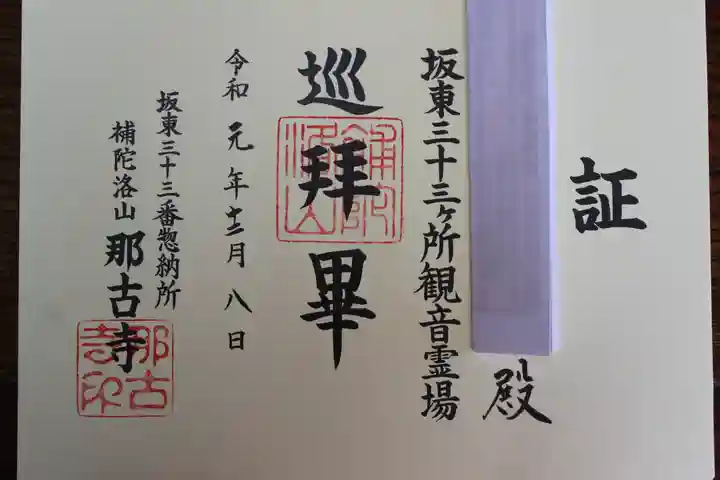 証
殿
坂東三十三ヶ所観音霊場
巡拝畢
令和元年十二月八日
坂東三十三番惣納所
補陀洛山那古寺
那古寺印